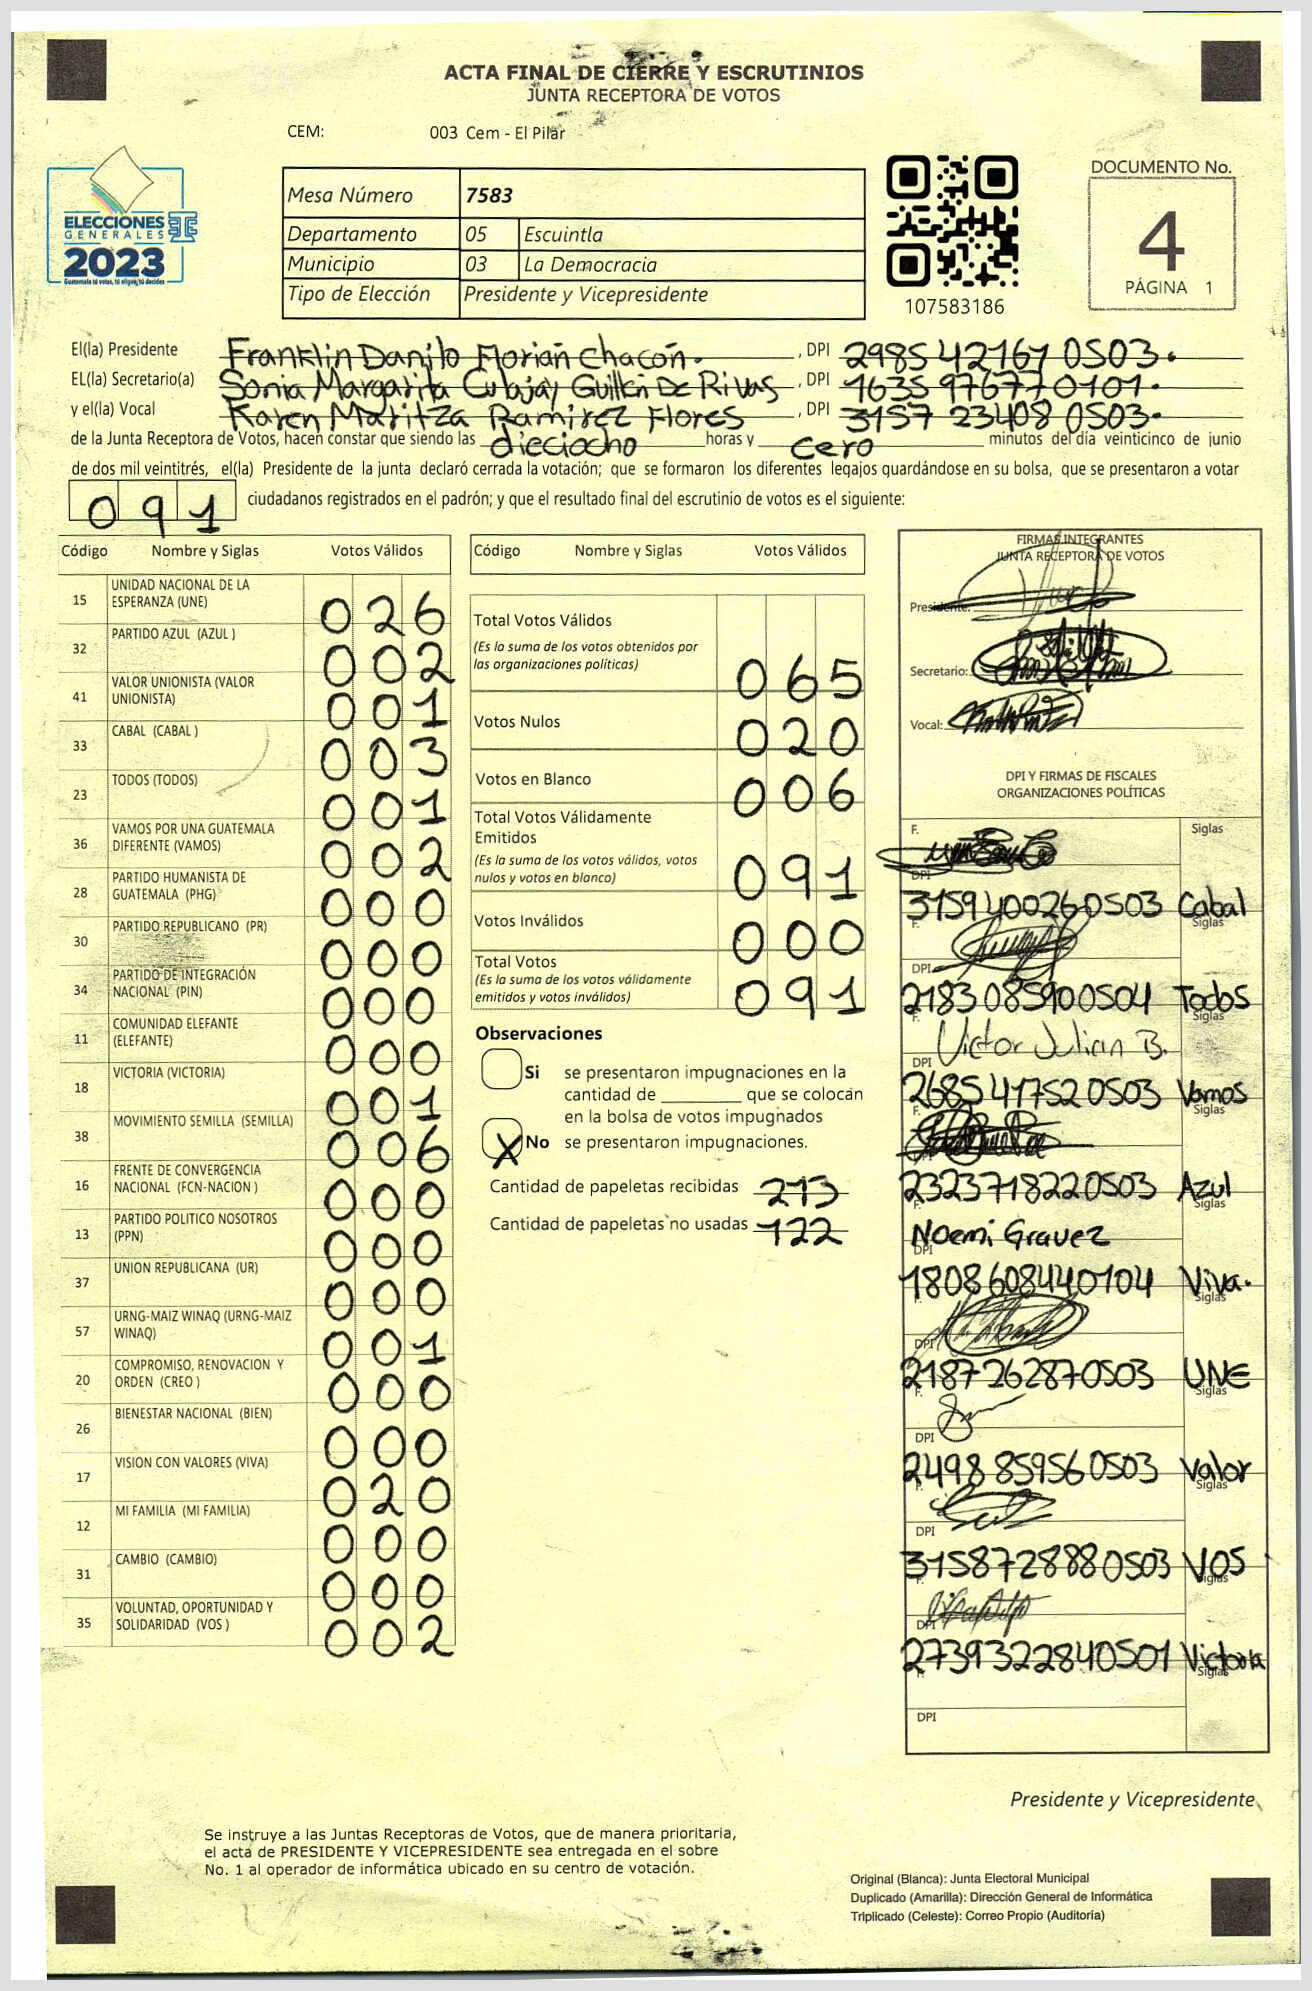 ACTA FINAL DE CIERRE Y ESCRUTINIOS
JUNTA RECEPTORA DE VOTOS
CEM: 003 Cem - El Pilar
ELECCIONES
GENERALES
2023
Guatemala tú votas, tú eliges, tú decides
Mesa Número 7583
Departamento 05 Escuintla
Municipio 03 La Democracia
Tipo de Elección Presidente y Vicepresidente
107583186
DOCUMENTO No.
4
PÁGINA 1
El(la) Presidente Franklin Danilo Florian Chacón. , DPI 2985 42167 0503.
EL(la) Secretario(a) Sonia Margarita Culajay Guillén De Rivas , DPI 1635 97677 0101.
y el(la) Vocal Karen Maritza Ramirez Flores , DPI 3157 23408 0503.
de la Junta Receptora de Votos, hacen constar que siendo las dieciocho horas y cero minutos del día veinticinco de junio
de dos mil veintitrés, el(la) Presidente de la junta declaró cerrada la votación; que se formaron los diferentes legajos guardándose en su bolsa, que se presentaron a votar
091 ciudadanos registrados en el padrón; y que el resultado final del escrutinio de votos es el siguiente:
Código Nombre y Siglas Votos Válidos
15 UNIDAD NACIONAL DE LA ESPERANZA (UNE) 026
32 PARTIDO AZUL (AZUL ) 002
41 VALOR UNIONISTA (VALOR UNIONISTA) 001
33 CABAL (CABAL ) 003
23 TODOS (TODOS) 001
36 VAMOS POR UNA GUATEMALA DIFERENTE (VAMOS) 002
28 PARTIDO HUMANISTA DE GUATEMALA (PHG) 000
30 PARTIDO REPUBLICANO (PR) 000
34 PARTIDO DE INTEGRACIÓN NACIONAL (PIN) 000
11 COMUNIDAD ELEFANTE (ELEFANTE) 000
18 VICTORIA (VICTORIA) 001
38 MOVIMIENTO SEMILLA (SEMILLA) 006
16 FRENTE DE CONVERGENCIA NACIONAL (FCN-NACION ) 000
13 PARTIDO POLITICO NOSOTROS (PPN) 000
37 UNION REPUBLICANA (UR) 000
57 URNG-MAIZ WINAQ (URNG-MAIZ WINAQ) 001
20 COMPROMISO, RENOVACION Y ORDEN (CREO ) 000
26 BIENESTAR NACIONAL (BIEN) 000
17 VISION CON VALORES (VIVA) 020
12 MI FAMILIA (MI FAMILIA) 000
31 CAMBIO (CAMBIO) 000
35 VOLUNTAD, OPORTUNIDAD Y SOLIDARIDAD (VOS ) 002
Código Nombre y Siglas Votos Válidos
Total Votos Válidos
(Es la suma de los votos obtenidos por
las organizaciones políticas) 065
Votos Nulos 020
Votos en Blanco 006
Total Votos Válidamente
Emitidos
(Es la suma de los votos válidos, votos
nulos y votos en blanco) 091
Votos Inválidos 000
Total Votos
(Es la suma de los votos válidamente
emitidos y votos inválidos) 091
Observaciones
Si se presentaron impugnaciones en la
cantidad de ________ que se colocan
en la bolsa de votos impugnados
X No se presentaron impugnaciones.
Cantidad de papeletas recibidas 213
Cantidad de papeletas no usadas 122
FIRMAS INTEGRANTES
JUNTA RECEPTORA DE VOTOS
Presidente:
Secretario:
Vocal:
DPI Y FIRMAS DE FISCALES
ORGANIZACIONES POLÍTICAS
F. Siglas
DPI
3159400260503 Cabal
F. Siglas
DPI
2183085900504 Todos
F. Siglas
Victor Julian B.
DPI
2685417520503 Vamos
F. Siglas
DPI
2323718220503 Azul
Siglas
Noemi Gravez
DPI
1808608440104 Viva.
F. Siglas
DPI
2187262870503 UNE
F. Siglas
DPI
2498859560503 Valor
F. Siglas
DPI
3158728880503 VOS
F. Siglas
DPI
2739322840501 Victoria
F. Siglas
DPI
Presidente y Vicepresidente
Se instruye a las Juntas Receptoras de Votos, que de manera prioritaria,
el acta de PRESIDENTE Y VICEPRESIDENTE sea entregada en el sobre
No. 1 al operador de informática ubicado en su centro de votación.
Original (Blanca): Junta Electoral Municipal
Duplicado (Amarilla): Dirección General de Informática
Triplicado (Celeste): Correo Propio (Auditoría)